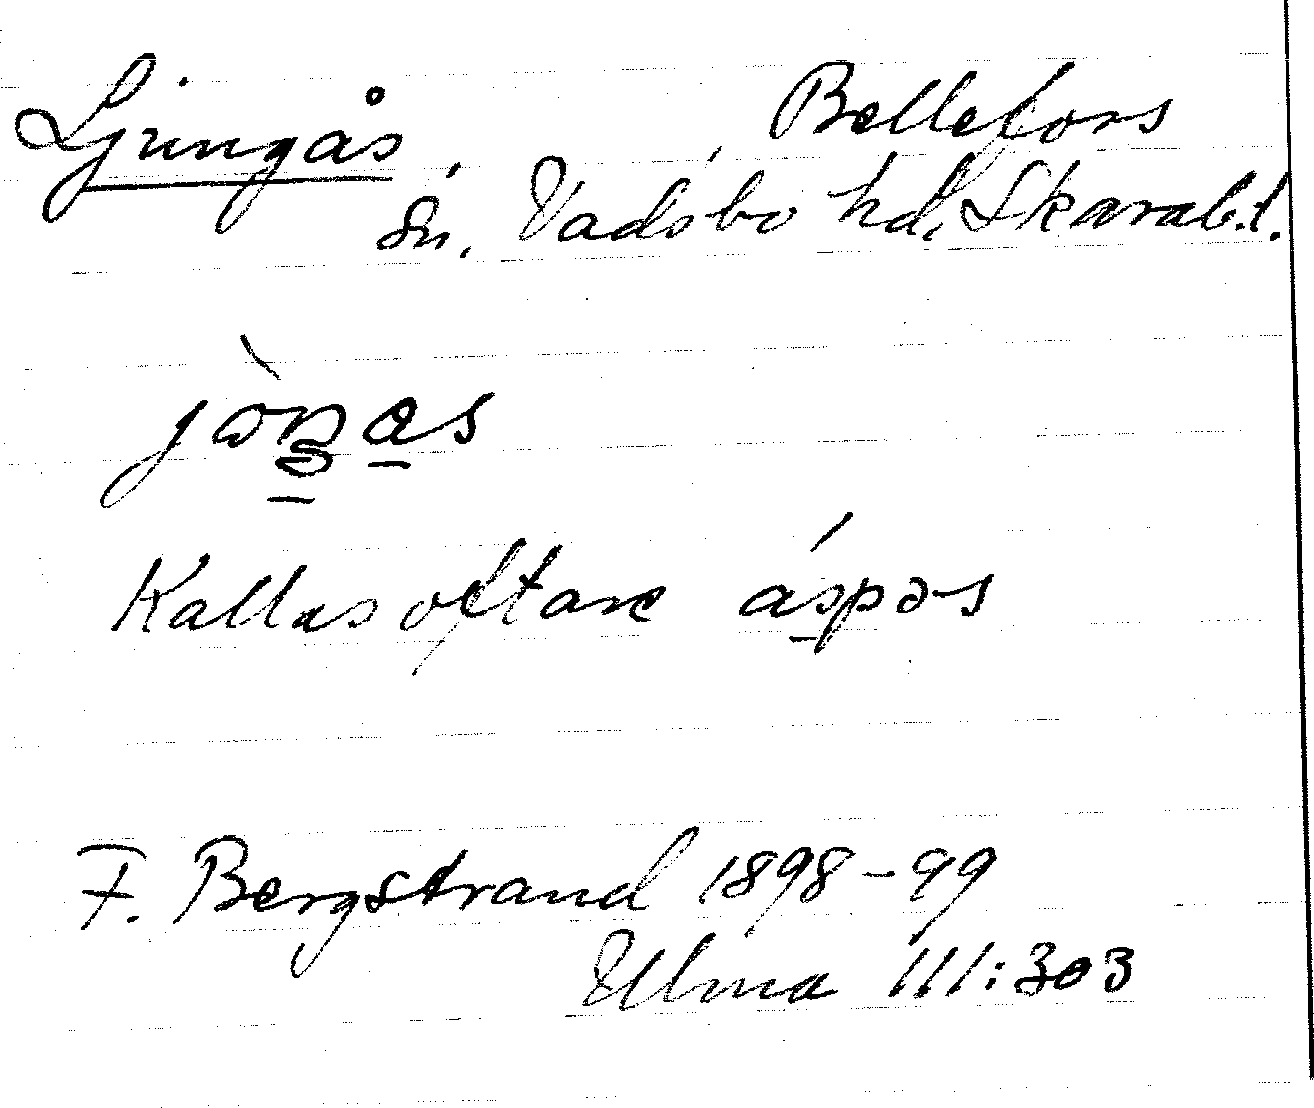 Ljungås, Bellefors
sn. Vadsbo hd, Skarab.l.
jòŋas
Kallas oftare áspəs
F. Bergstrand 1898-99
Ulma 111:303